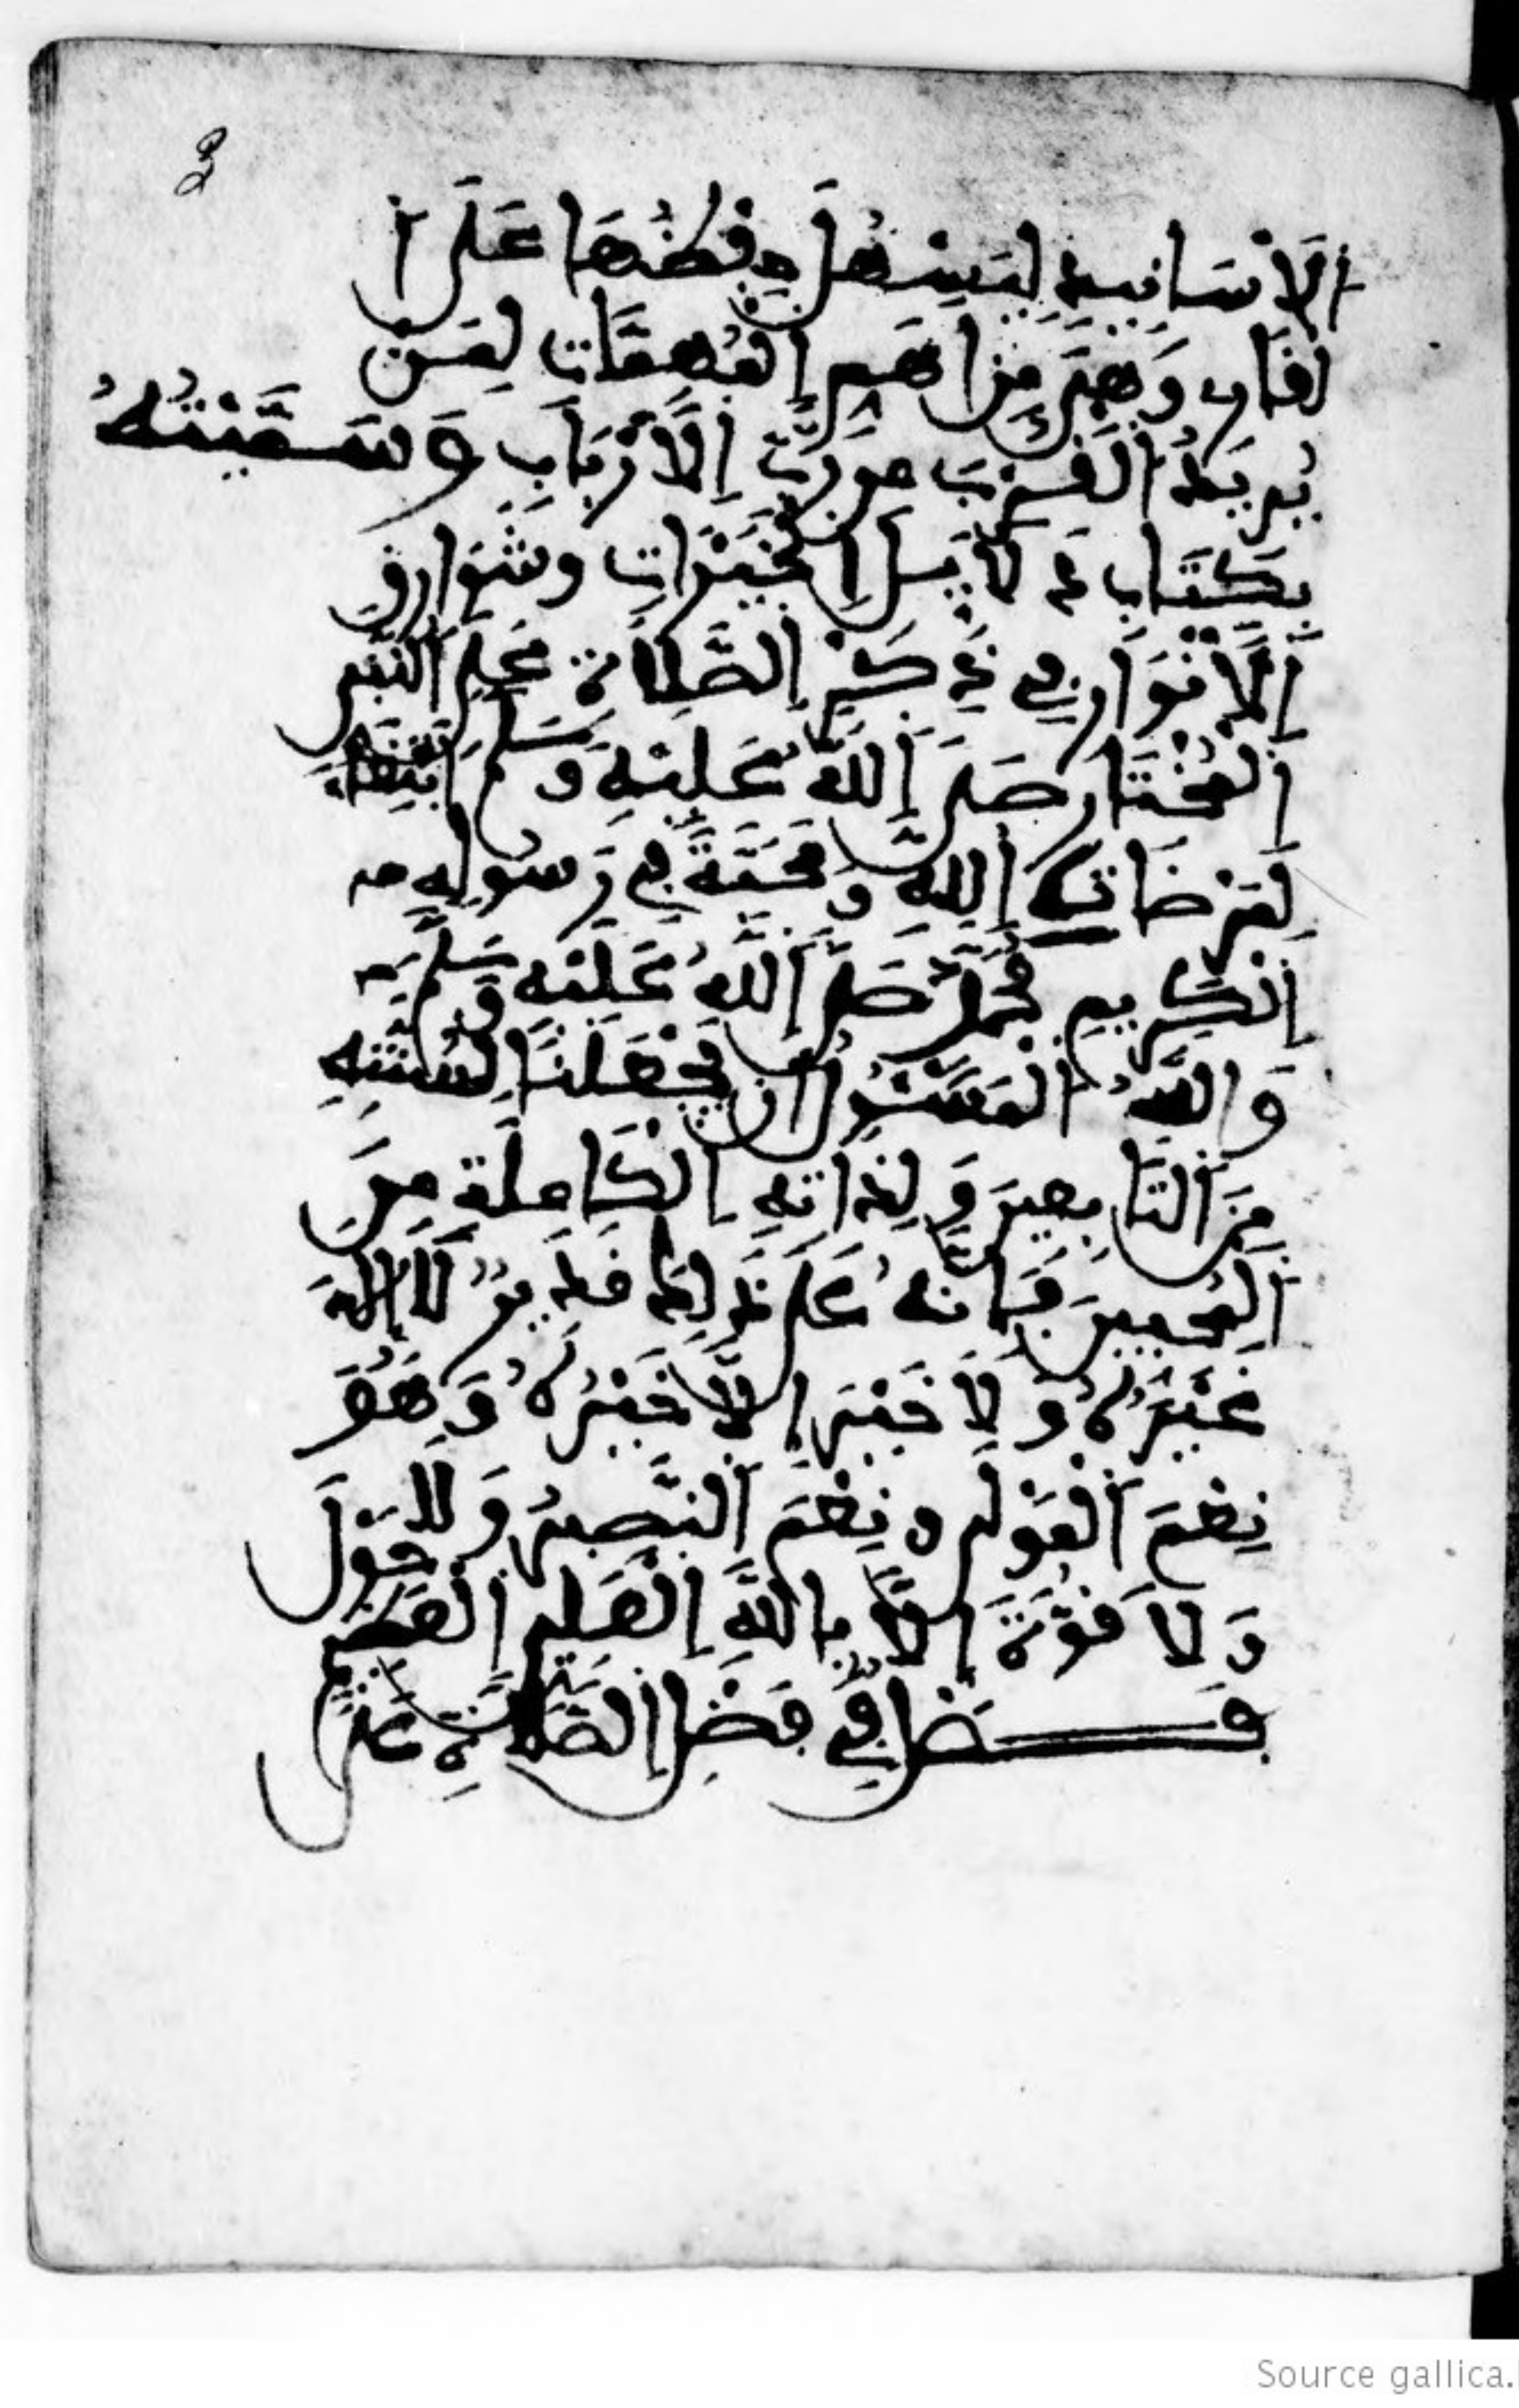 3
اَلَاسَانِيدِ لِيَسْهُلَ حِفْظُهَا عَلَى اَ
لْقَارِ وَهِيَ مِنْ اَهَمِّ اِلْمُهِمَّاتِ لِمَنْ
يُرِيدُ اَلْقُرْبَ مِن رَّبِّ اِلَارْبَابِ وَسَمَّيْتُهُ
بِكِتَابِ دَلَايِلِ اِلْخَيْرَاتِ وَشَوَارِقِ
اِلَانْوَارِ فِي ذِكْرِ اِلصَّلَاةِ عَلَى اَلنَّبِيِّ
اِلْمُخْتَارِ صَلَّى اَللَّهُ عَلَيْهِ وَسَلَّمَ اَبْتِغَاءَ
لِمَرْضَاتِ اِللَّهِ وَمَحَبَّةً فِي رَسُولِهِ
اِلْكَرِيمِ مُحَمَّدٍ صَلَّى اَللَّهُ عَلَيْهِ وَسَلَّمَ
وَاللَّهُ اَلْمَسْئُولُ أَنْ يَجْعَلَنَا لِسُنَّتِهِ
مِنَ اَلتَّابِعِينَ وَلِذَاتِهِ اِلْكَامِلَةِ مِنَ
اَلْمُحِبِّينَ فَإِنَّهُ عَلَى ذَلِكَ قَدِيرٌ لَا إِلَهَ
غَيْرُهُ وَلَا خَيْرَ اِلَّا خَيْرُهُ وَهُوَ
نِعْمَ اَلْمَوْلَى وَنِعْمَ اَلنَّصِيرُ وَلَا حَوْلَ
وَلَا قُوَّةَ اِلَّا بِاللَّهِ اِلْعَلِيِّ اِلْعَظِيمِ
فَصْلٌ فِي فَضْلِ اِلصَّلَاةِ عَلَى
Source gallica.